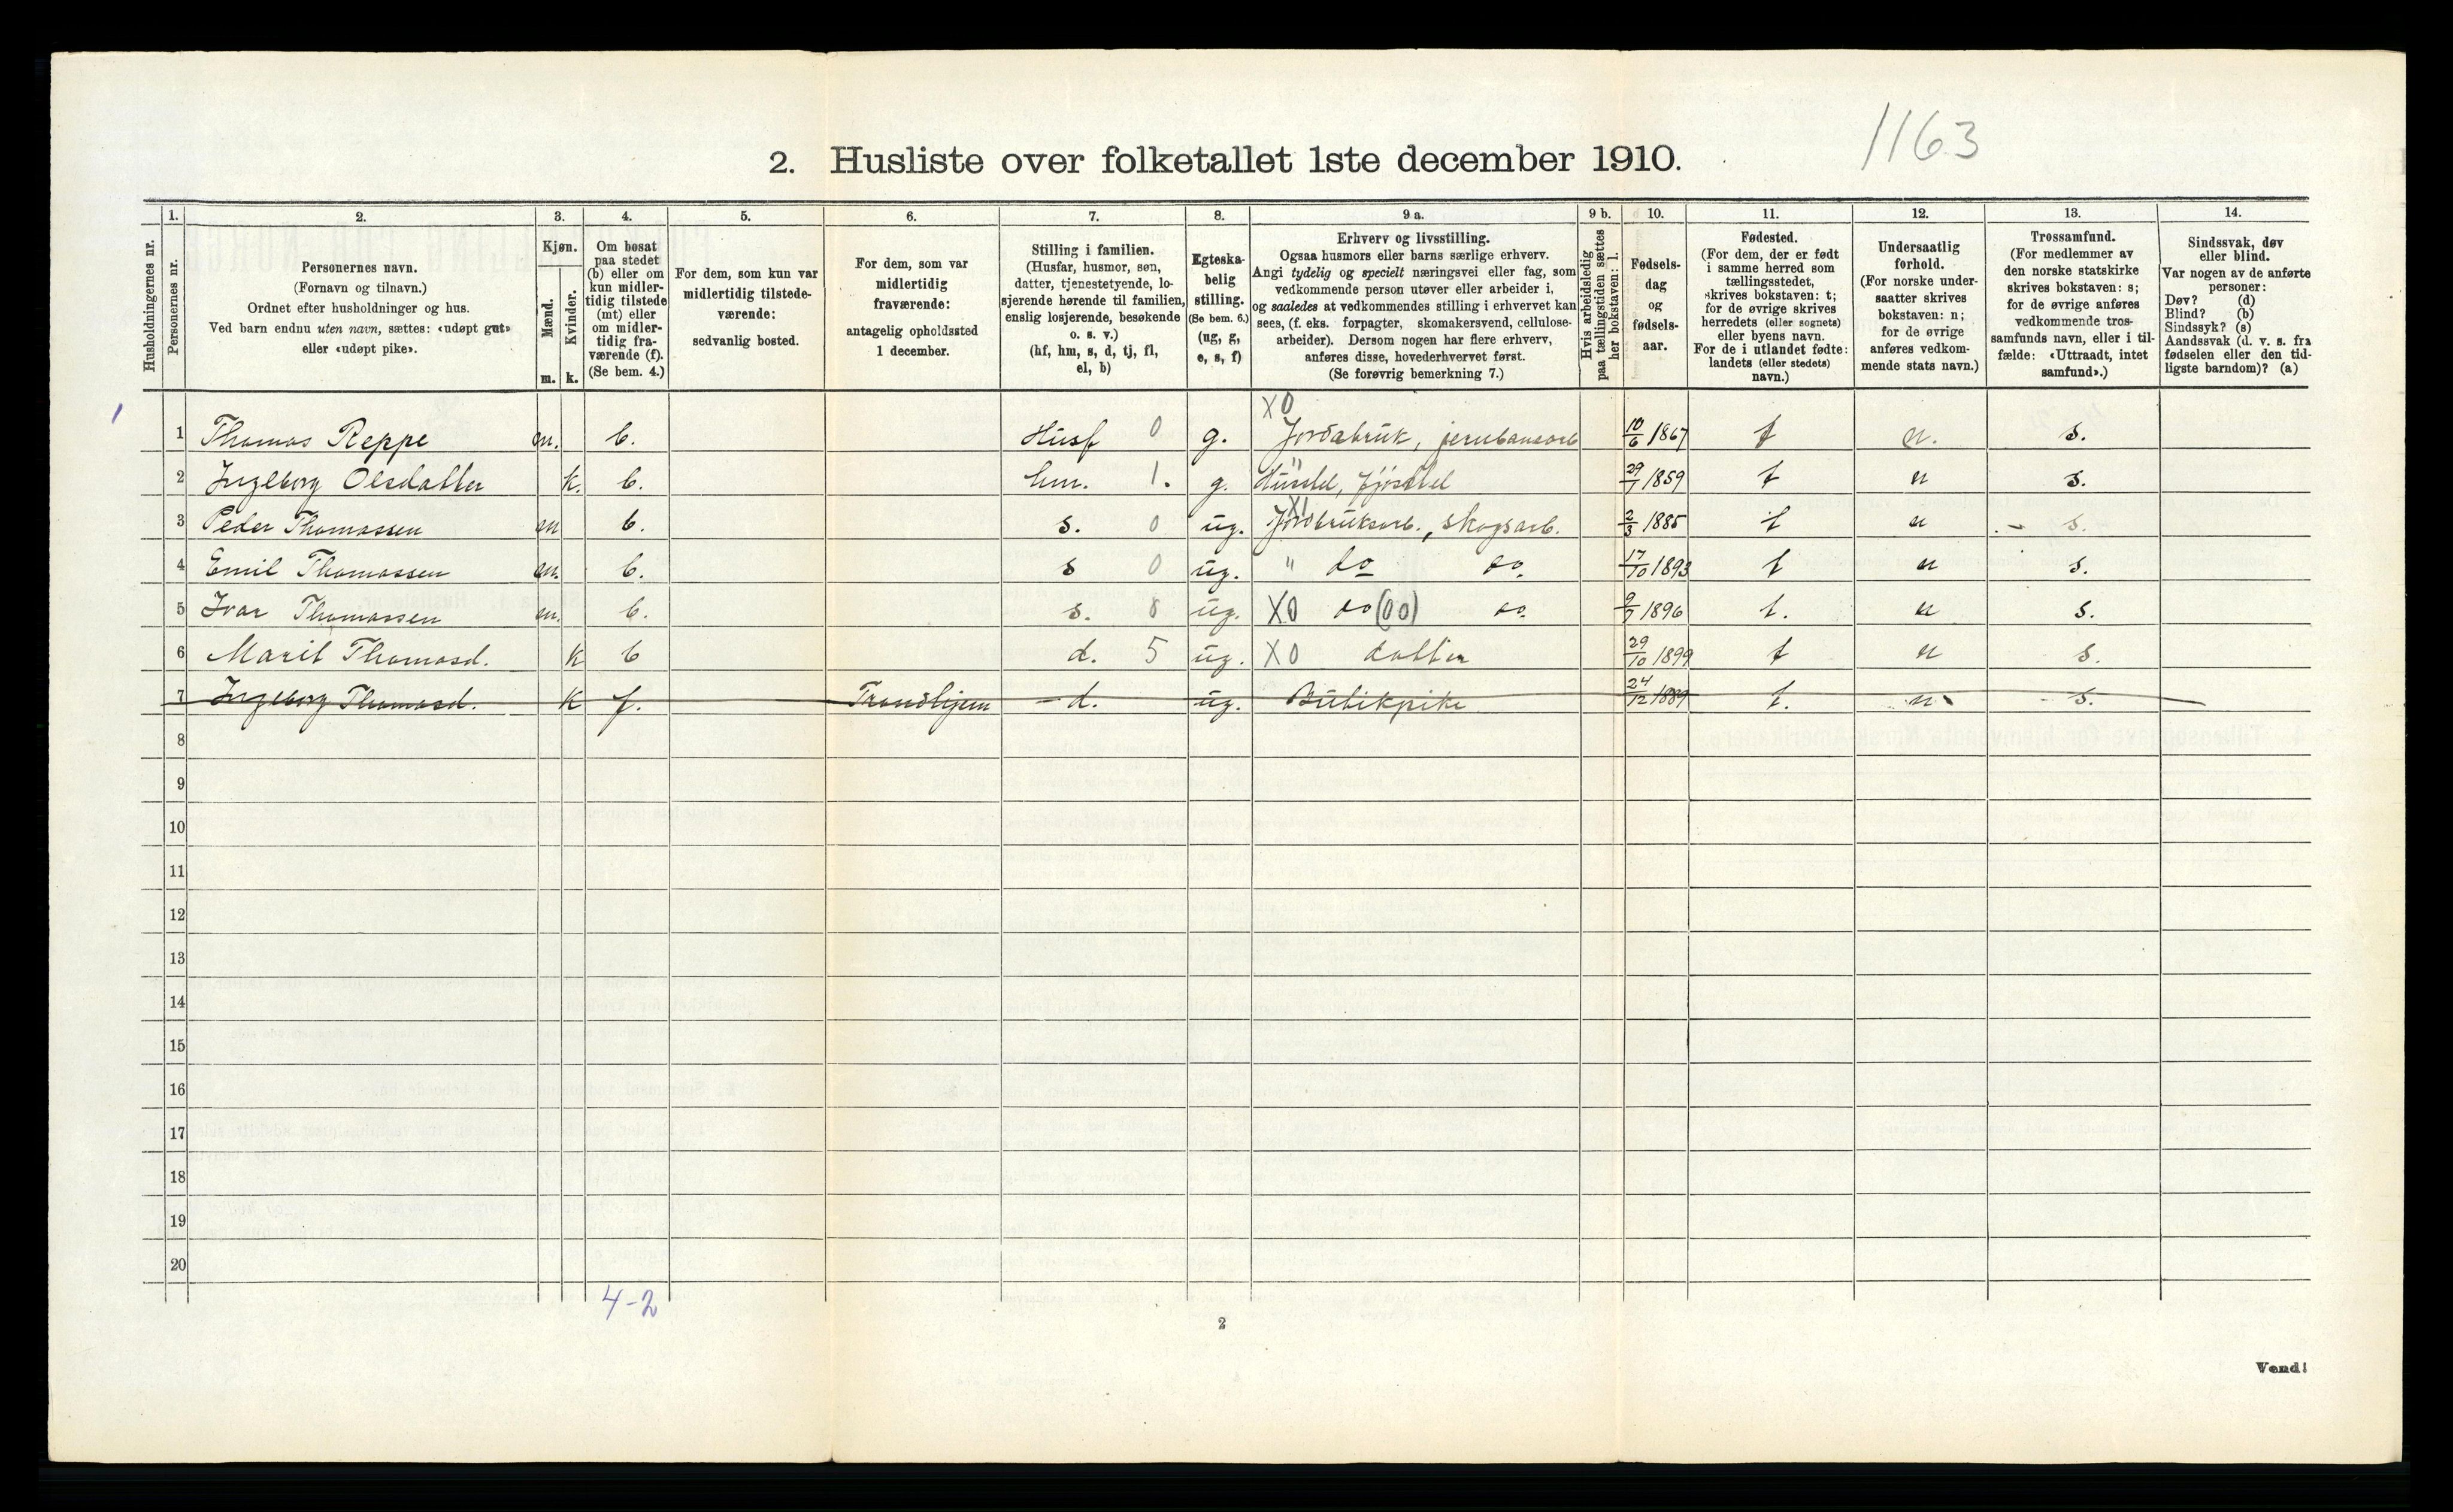 1163
2. Husliste over folketallet 1ste december 1910.
1. 2. 3. 4. 5. 6. 7. 8. 9 a. 9 b. 10. 11. 12. 13. 14.
Husholdningernes nr.
Personernes nr.
Personernes navn.
(Fornavn og tilnavn.)
Ordnet efter husholdninger og hus.
Ved barn endnu uten navn, sættes: «udøpt gut»
eller «udøpt pike».
Kjøn.
Mænd.
Kvinder.
m. k.
Om bosat
paa stedet
(b) eller om
kun midler-
tidig tilstede
(mt) eller
om midler-
tidig fra-
værende (f).
(Se bem. 4.)
For dem, som kun var
midlertidig tilstede-
værende:
sedvanlig bosted.
For dem, som var
midlertidig
fraværende:
antagelig opholdssted
1 december.
Stilling i familien.
(Husfar, husmor, søn,
datter, tjenestetyende, lo-
sjerende hørende til familien,
enslig losjerende, besøkende
o. s. v.)
(hf, hm, s, d, tj, fl,
el, b)
Egteska-
belig
stilling.
(Se bem. 6.)
(ug, g,
e, s, f)
Erhverv og livsstilling.
Ogsaa husmors eller barns særlige erhverv.
Angi tydelig og specielt næringsvei eller fag, som
vedkommende person utøver eller arbeider i,
og saaledes at vedkommendes stilling i erhvervet kan
sees, (f. eks. forpagter, skomakersvend, cellulose-
arbeider). Dersom nogen har flere erhverv,
anføres disse, hovederhvervet først.
(Se forøvrig bemerkning 7.)
Hvis arbeidsledig
paa tællingstiden sættes
her bokstaven: l.
Fødsels-
dag
og
fødsels-
aar.
Fødested.
(For dem, der er født
i samme herred som
tællingsstedet,
skrives bokstaven: t;
for de øvrige skrives
herredets (eller sognets)
eller byens navn.
For de i utlandet fødte:
landets (eller stedets)
navn.)
Undersaatlig
forhold.
(For norske under-
saatter skrives
bokstaven: n;
for de øvrige
anføres vedkom-
mende stats navn.)
Trossamfund.
(For medlemmer av
den norske statskirke
skrives bokstaven: s;
for de øvrige anføres
vedkommende tros-
samfunds navn, eller i til-
fælde: «Uttraadt, intet
samfund».)
Sindssvak, døv
eller blind.
Var nogen av de anførte
personer:
Døv? (d)
Blind? (b)
Sindssyk? (s)
Aandssvak (d. v. s. fra
fødselen eller den tid-
ligste barndom)? (a)
1 X0
1 Thomas Reppe m. b. Husf 0 g. Jordabruk, jernbanearb 10/6 1867 t n. s.
2 Ingeborg Olsdatter k. b. hm. 1. g. Husstel, fjøsstel 29/7 1859 t n s.
X1
3 Peder Thomassen m b. s. 0 ug. Jordbruksarb., skogsarb. 2/3 1885 t n - s.
4 Emil Thomassen m. b. s 0 ug. " do do 17/10 1893 t n s.
5 Ivar Thomassen m. b. s. 8 ug. X0 do (00) do 9/7 1896 t. n s.
6 Marit Thomasd. k b d. 5 ug. X0 datter 29/10 1899 t n s.
7 Ingeborg Thomasd. k f. Trondhjem d. ug. Butikpike 24/12 1889 t. n s.
8
9
10
11
12
13
14
15
16
17
18
19
20
4-2
2
Vend!